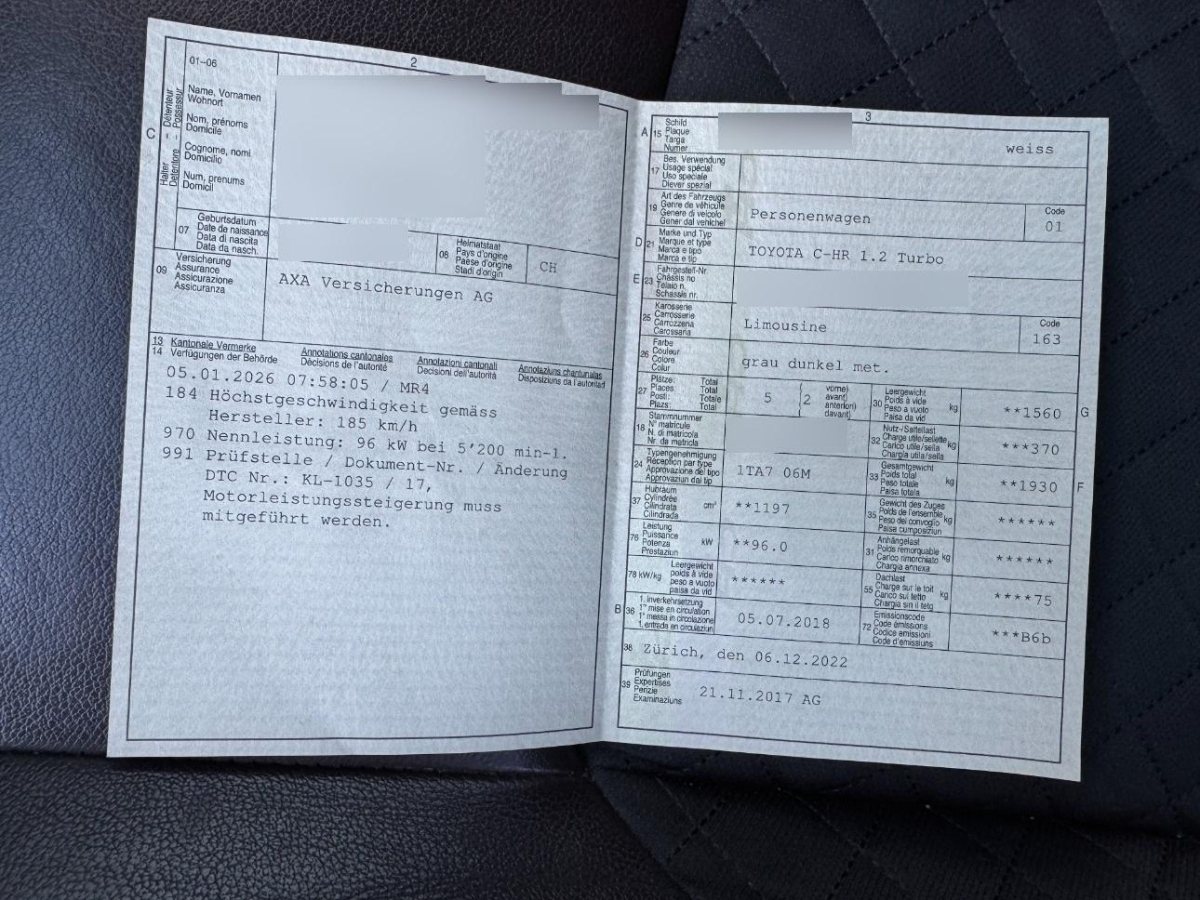 2
01-06
C
Halter - Détenteur
Detentore - Possessur
Name, Vornamen
Wohnort
Nom, prénoms
Domicile
Cognome, nomi
Domicilio
Num, prenums
Domicil
07
Geburtsdatum
Date de naissance
Data di nascita
Data da nasch.
08
Heimatstaat
Pays d'origine
Paese d'origine
Stadi d'origin
CH
09
Versicherung
Assurance
Assicurazione
Assicuranza
AXA Versicherungen AG
13 Kantonale Vermerke Annotations cantonales Annotazioni cantonali Annotaziuns chantunalas
14 Verfügungen der Behörde Décisions de l'autorité Decisioni dell'autorità Disposiziuns da l'autoritad
05.01.2026 07:58:05 / MR4
184 Höchstgeschwindigkeit gemäss
Hersteller: 185 km/h
970 Nennleistung: 96 kW bei 5'200 min-1.
991 Prüfstelle / Dokument-Nr. / Änderung
DTC Nr.: KL-1035 / 17,
Motorleistungssteigerung muss
mitgeführt werden.
3
A 15
Schild
Plaque
Targa
Numer
weiss
17
Bes. Verwendung
Usage spécial
Uso speciale
Diever spezial
19
Art des Fahrzeugs
Genre de véhicule
Genere di veicolo
Gener dal vehichel
Personenwagen
Code
01
D 21
Marke und Typ
Marque et type
Marca e tipo
Marca e tip
TOYOTA C-HR 1.2 Turbo
E 23
Fahrgestell-Nr.
Châssis no
Telaio n.
Schassis nr.
25
Karosserie
Carrosserie
Carrozzeria
Carossaria
Limousine
Code
163
26
Farbe
Couleur
Colore
Calur
grau dunkel met.
27
Plätze: Total
Places: Total
Posti: Totale
Plazs: Total
5
(2
vorne)
avant)
anteriori)
davant)
30
Leergewicht
Poids à vide
Peso a vuoto
Paisa da vid
kg
**1560
G
18
Stammnummer
N° matricule
N. di matricola
Nr. da matricla
32
Nutz-/Sattellast
Charge utile/sellette
Carico utile/sella
Chargia utila/sella
kg
***370
24
Typengenehmigung
Réception par type
Approvazione del tipo
Approvaziun dal tip
1TA7 06M
33
Gesamtgewicht
Poids total
Peso totale
Paisa totala
kg
**1930
F
37
Hubraum
Cylindrée
Cilindrata
Cilindrada
cm³
**1197
35
Gewicht des Zuges
Poids de l'ensemble
Peso del convoglio
Paisa cumposiziun
kg
******
76
Leistung
Puissance
Potenza
Prestaziun
kW
**96.0
31
Anhängelast
Poids remorquable
Carico rimorchiato
Chargia annexa
kg
******
78 kW/kg
Leergewicht
poids à vide
peso a vuoto
paisa da vid
******
55
Dachlast
Charge sur le toit
Carico sul tetto
Chargia sin il tetg
kg
****75
B 36
1. Inverkehrsetzung
1re mise en circulation
1a messa in circolazione
1. entrada en circulaziun
05.07.2018
72
Emissionscode
Code émissions
Codice emissioni
Code d'emissiuns
***B6b
38
Zürich, den 06.12.2022
39
Prüfungen
Expertises
Perizie
Examinaziuns
21.11.2017 AG